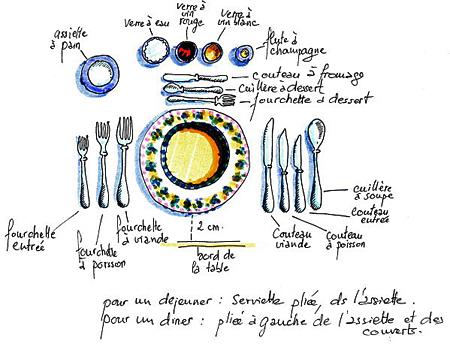 assiette
à
pain
verre à eau
verre à
vin
rouge
verre à
vin blanc
flute à
champagne
couteau à fromage
cuillère à dessert
fourchette à dessert
fourchette
entrée
fourchette
à poisson
fourchette
à viande
2 cm.
bord de
la table
Couteau
viande
couteau
à poisson
couteau
entrée
cuillère
à soupe
pour un déjeuner : Serviette pliée, ds l'assiette.
pour un diner : pliée à gauche de l'assiette et des
couverts.